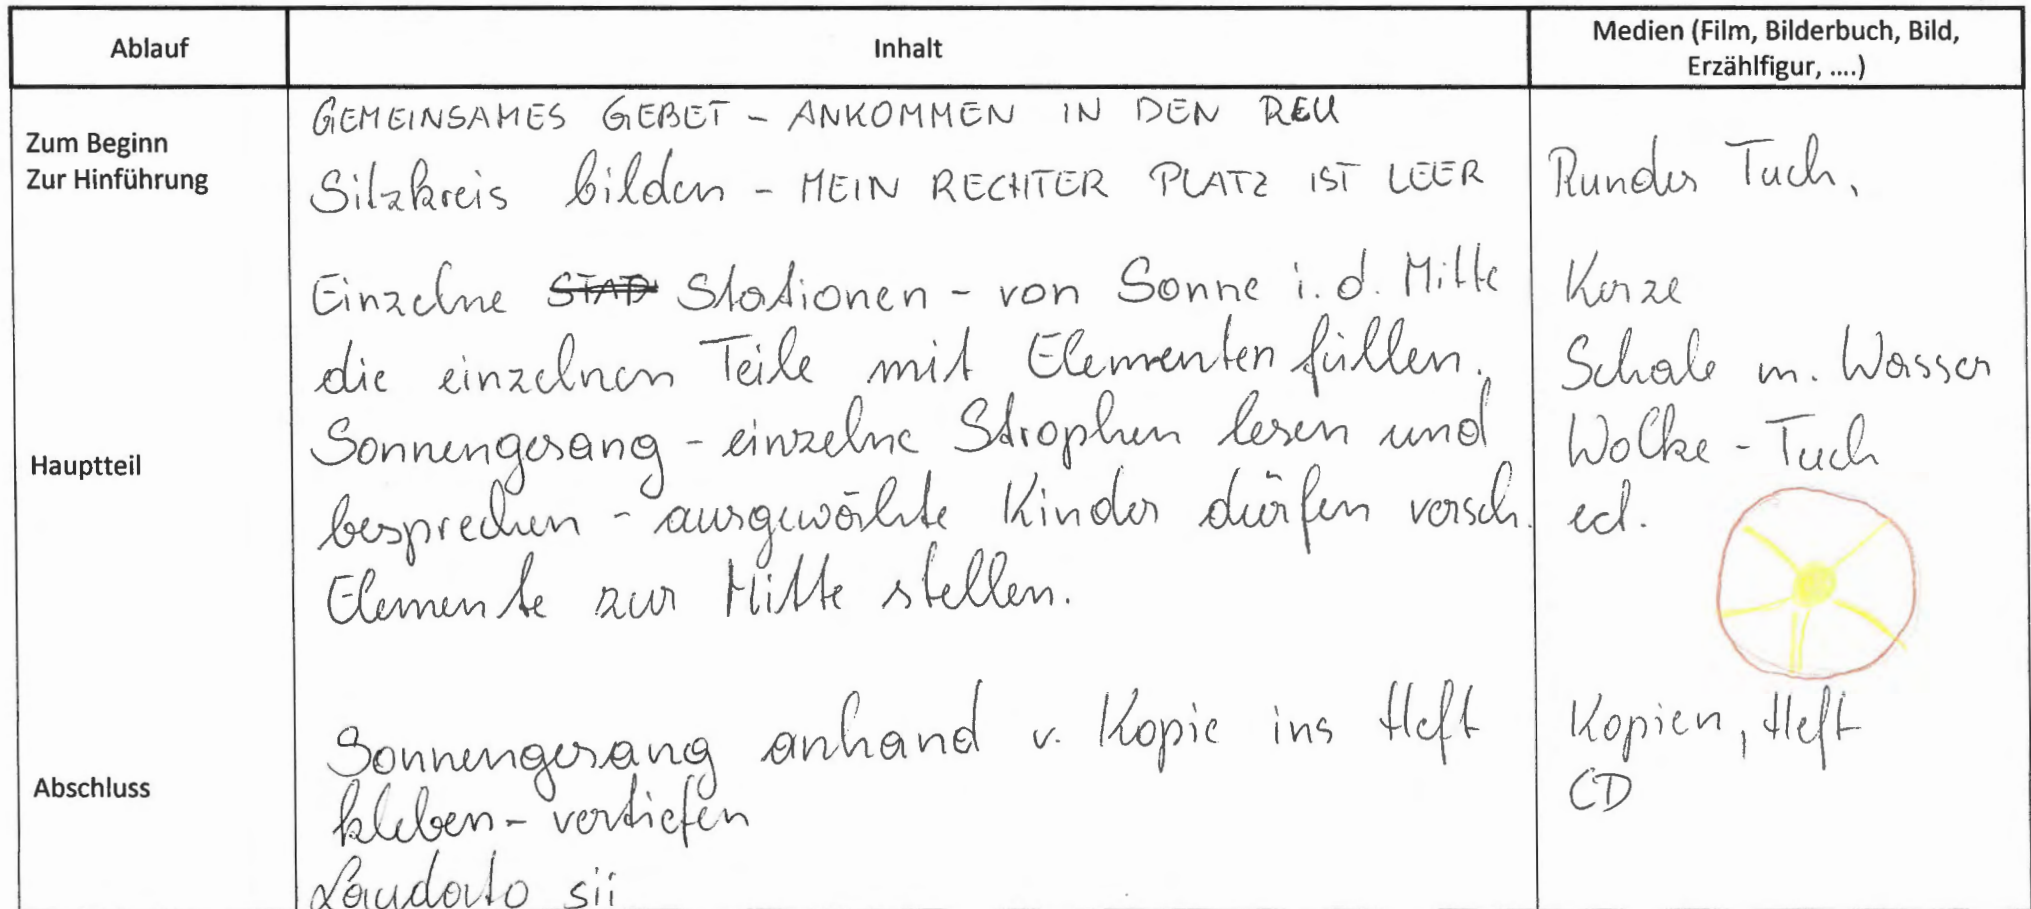 Ablauf
Inhalt
Medien (Film, Bilderbuch, Bild,
Erzählfigur, ....)
Zum Beginn
Zur Hinführung
GEMEINSAMES GEBET - ANKOMMEN IN DEN REU
Sitzkreis bilden - MEIN RECHTER PLATZ IST LEER
Rundes Tuch,
Hauptteil
Einzelne STAD Stationen - von Sonne i. d. Mitte
die einzelnen Teile mit Elementen füllen.
Sonnengesang - einzelne Strophen lesen und
besprechen - ausgewählte Kinder dürfen versch.
Elemente zur Mitte stellen.
Kerze
Schale m. Wasser
Wolke - Tuch
ect.
Abschluss
Sonnengesang anhand v. Kopie ins Heft
kleben - vertiefen
Laudato sii
Kopien, Heft
CD